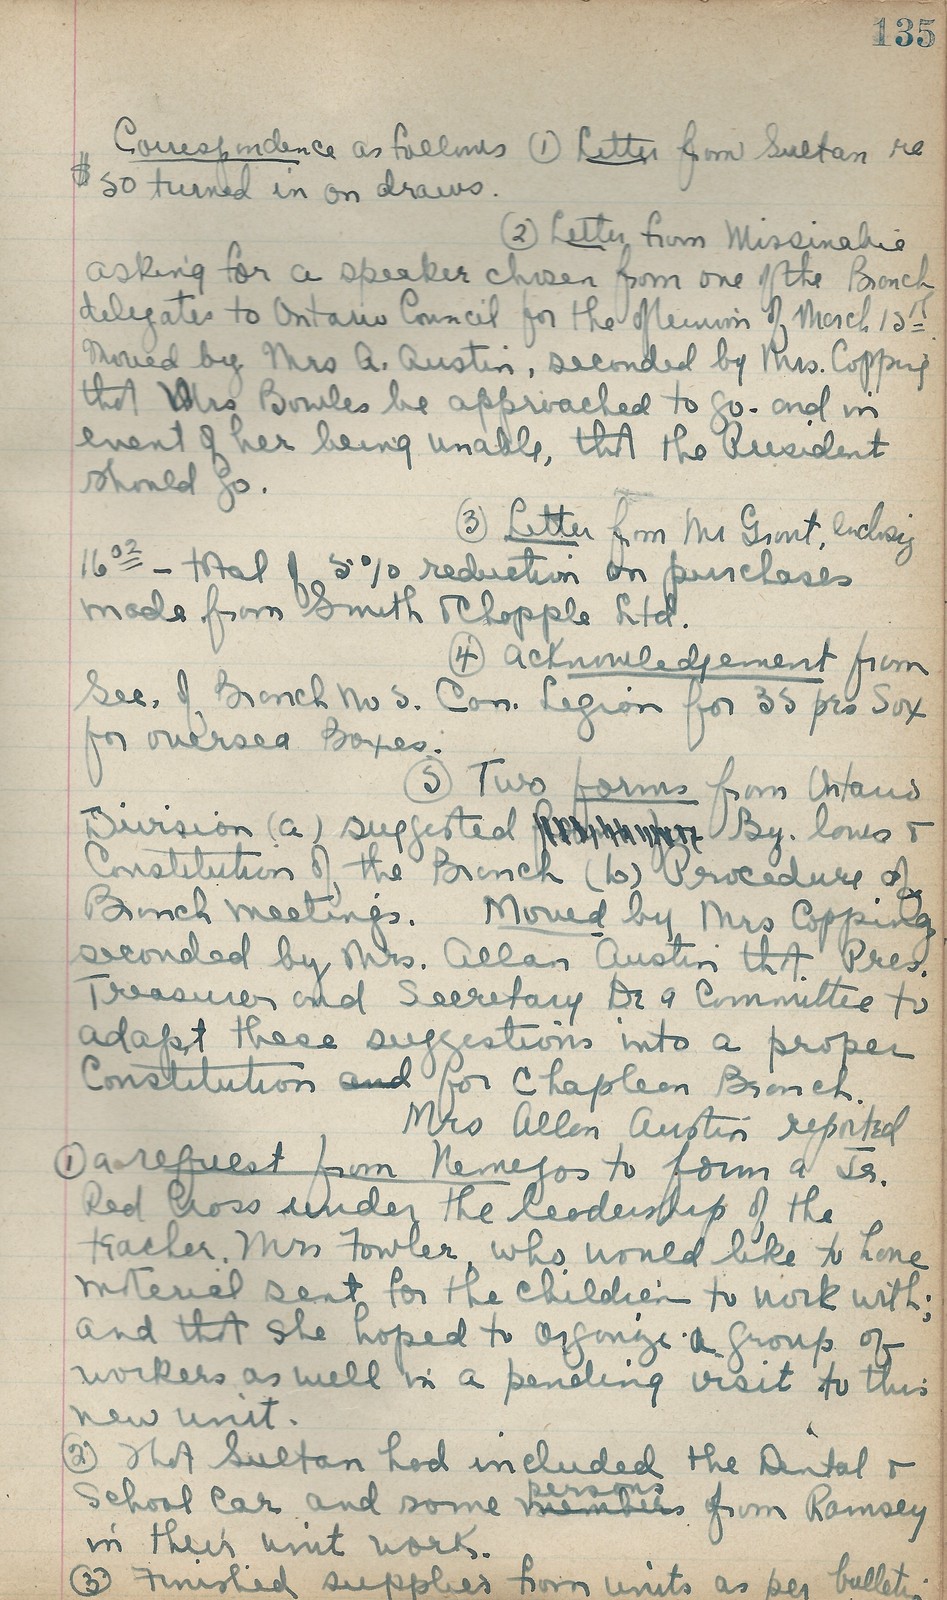 135
Correspondence as follows (1) Letter from Sultan re
$50 turned in on draws.
(2) Letter from Missinabie
asking for a speaker chosen from one of the Branch
delegates to Ontario Council for the afternoon of March 15th.
Moved by Mrs A. Austin, seconded by Mrs. Copping
that Mrs Bowles be approached to go - and in
event of her being unable, that the President
should go.
(3) Letter from Mr Grant, enclosing
16.02 - total of 5% reduction on purchases
made from Smith & Chapple Ltd.
(4) acknowledgement from
Sec. of Branch No 5. Can. Legion for 35 prs Sox
for oversea Boxes.
(5) Two forms from Ontario
Division (a) suggested By. laws &
Constitution of the Branch (b) Procedure of
Branch meetings. Moved by Mrs Copping
seconded by Mrs. Allan Austin that Pres.
Treasurer and Secretary be a Committee to
adapt these suggestions into a proper
Constitution and for Chapleau Branch.
Mrs Allan Austin reported
(1) a request from Nemegos to form a Jr.
Red Cross under the leadership of the
teacher, Mrs Fowler, who would like to have
material sent for the children to work with;
and that she hoped to organize a group of
workers as well in a pending visit to this
new unit.
(2) That Sultan had included the Dental &
School Car and some members persons from Ramsey
in their unit work.
(3) Finished supplies from units as per bulletin